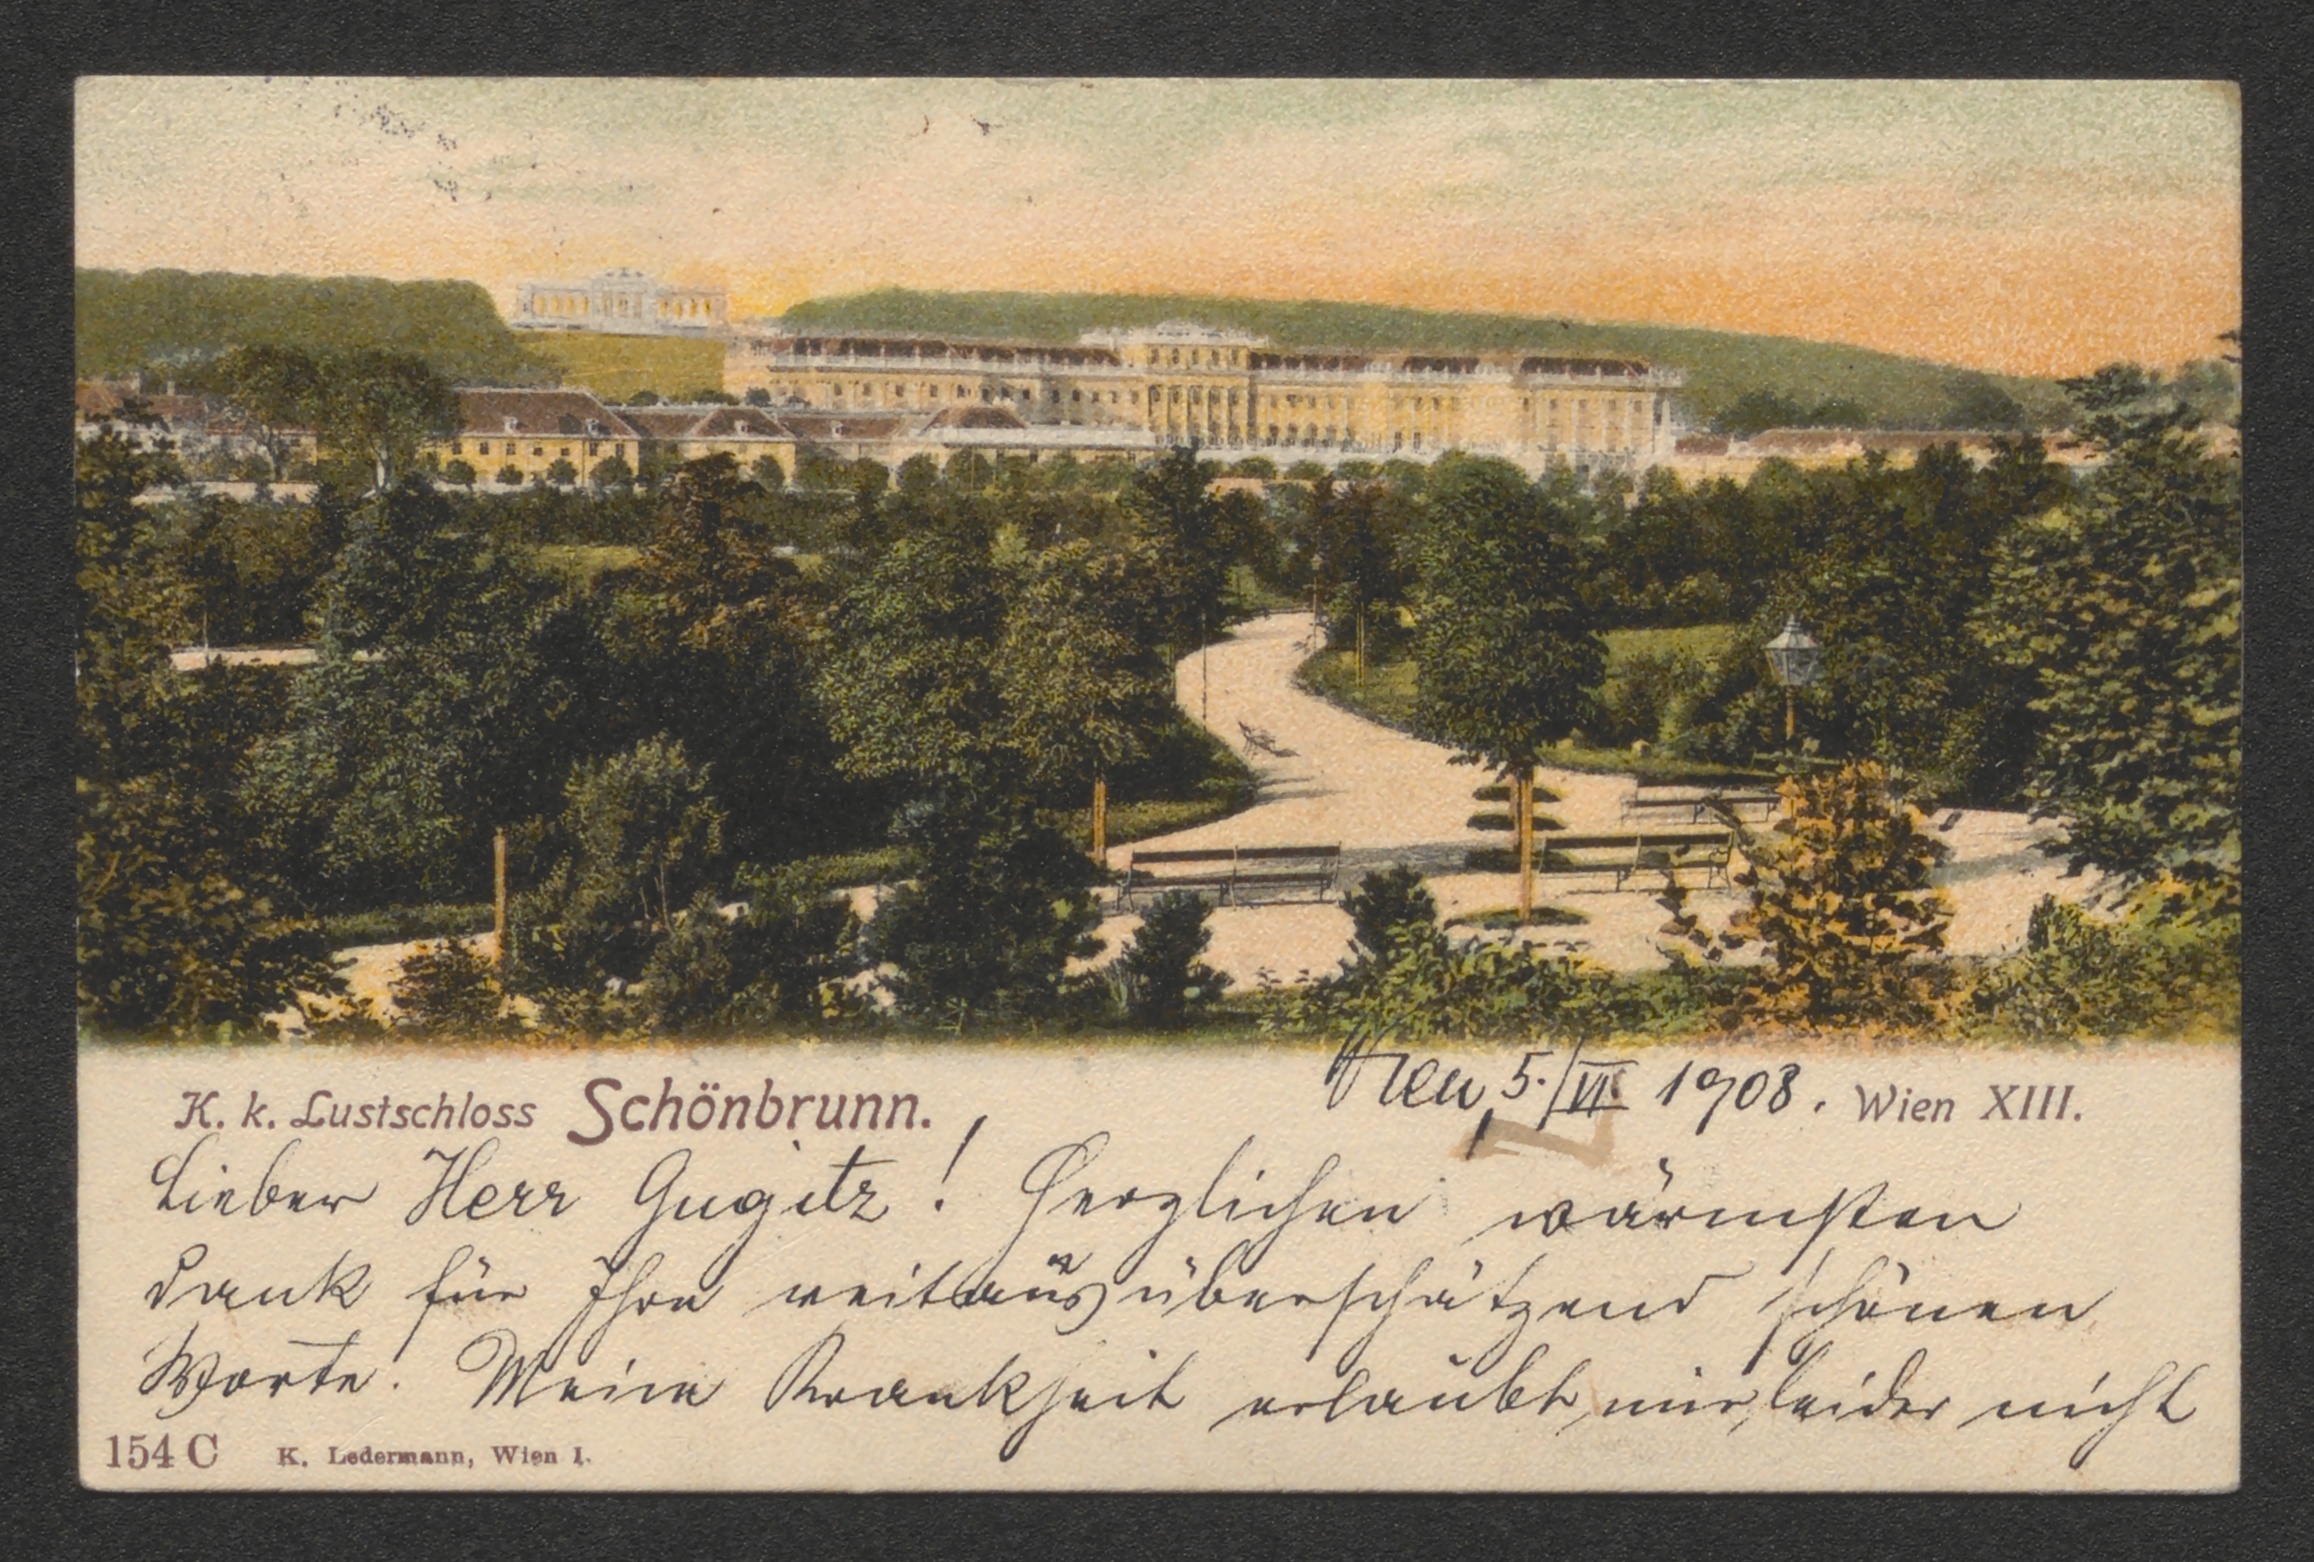 K. k. Lustschloss Schönbrunn.
Wien, 5./VI. 1908.
Wien XIII.
Lieber Herr Gugitz! Herzlichen wärmsten
Dank für Ihre weitaus überschätzend schönen
Worte. Meine Krankheit erlaubt mir leider nicht
154 C K. Ledermann, Wien I.